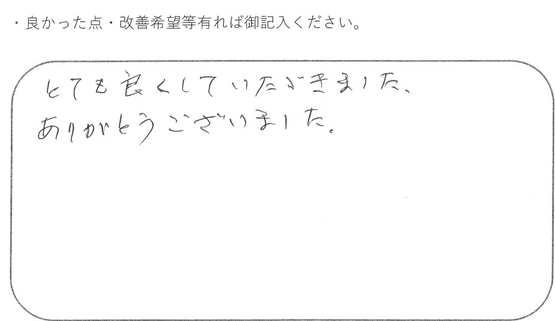 ・良かった点・改善希望等有れば御記入ください。
とても良くしていただきました、
ありがとうございました。